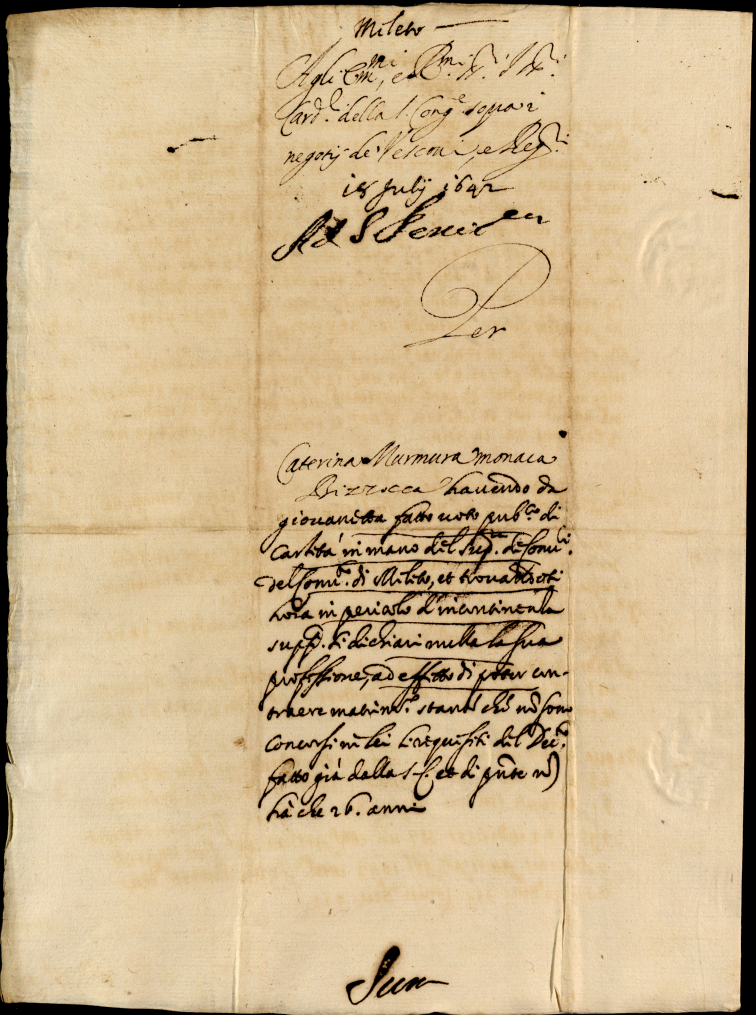 Mileto
Agli Em.mi, e R.mi SS.ri SS.ri
Card.li della S. Cong.e sopra i
negotij de Vescovi, e Reg.ri
18 July 1642
Ad S
Per
Caterina Murmura monaca
Bizzocca havendo da
giovanetta fatto voto pub.co di
Castità in mano del Sup.re de Conv.li
del Conv.to di Mileto, et trovandosi
hora in pericolo d'incontinenza
supp.ca si dichiari nulla la sua
professione, ad effetto di poter con-
traere matrim.o stante che nõ sono
concorsi in lei li requisiti del Dec.to
fatto già dalla S. C. et di pñte nõ
hà che 26. anni
Sum